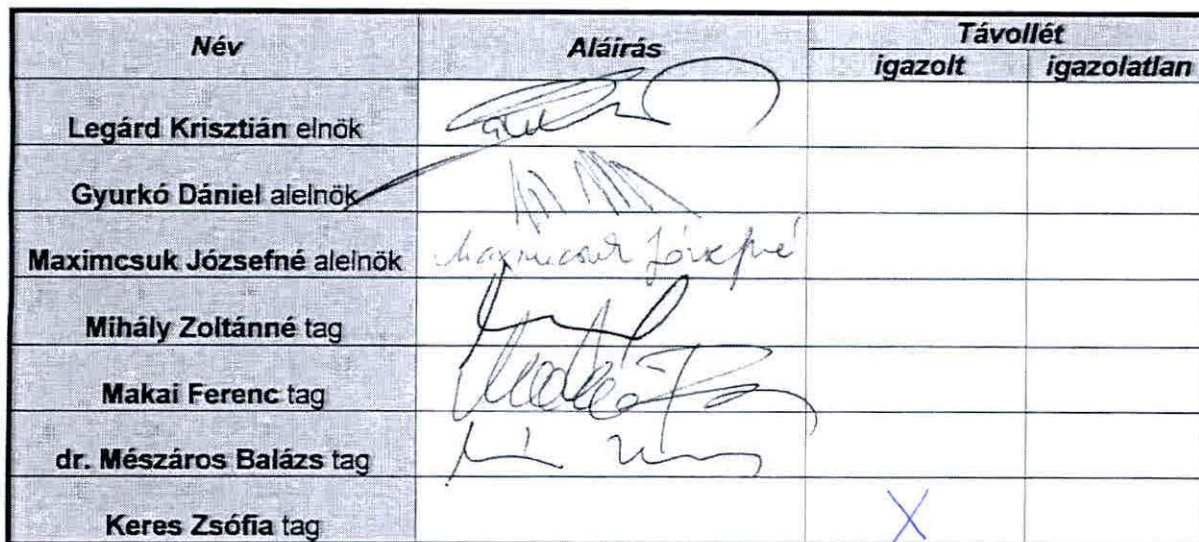 Név Aláírás Távollét
igazolt igazolatlan
Legárd Krisztián elnök
Gyurkó Dániel alelnök
Maximcsuk Józsefné alelnök Maximcsuk Józsefné
Mihály Zoltánné tag
Makai Ferenc tag
dr. Mészáros Balázs tag
Keres Zsófia tag X